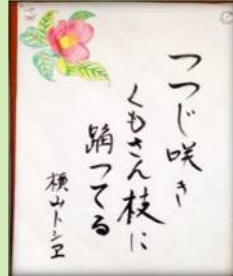 つつじ咲き
くもさん枝に
踊つてる
横山トシヱ